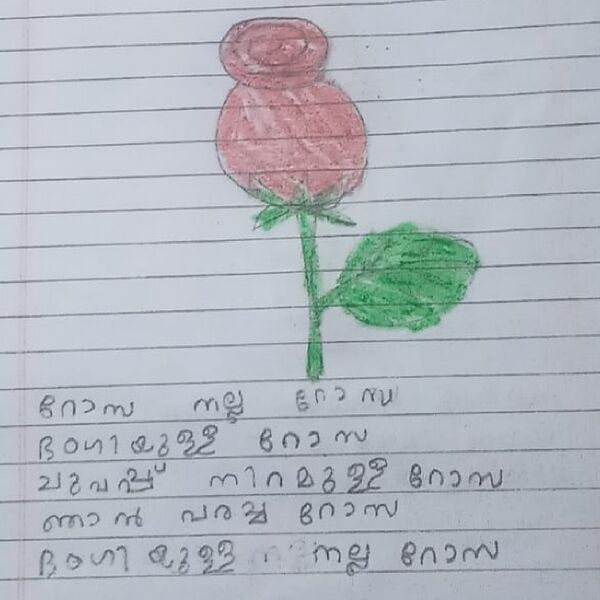 റോസ നല്ല റോസ
ഭംഗിയുള്ള റോസ
ചുവപ്പ് നിറമുള്ള റോസ
ഞാൻ വരച്ച റോസ
ഭംഗിയുള്ള നല്ല റോസ